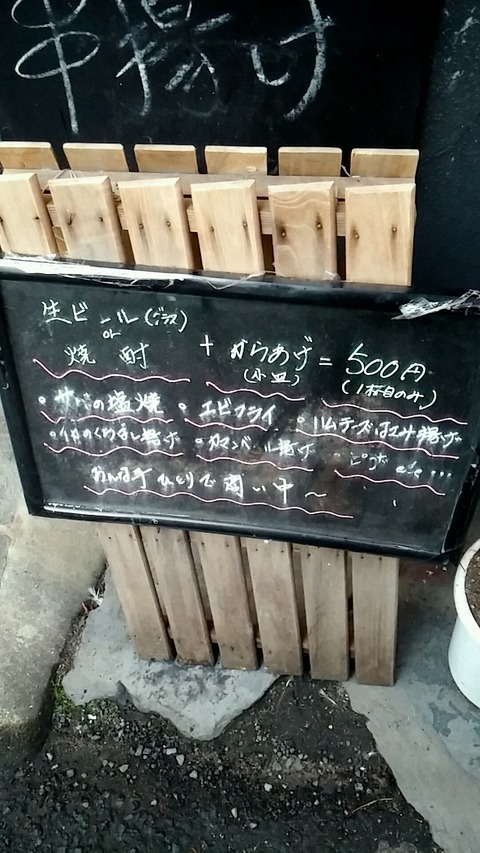 串揚げ
生ビール(グラス)
or
焼酎 + からあげ = 500円
(小皿) (1杯目のみ)
・サバの塩焼 ・エビフライ ・ハムチーズはさみ揚げ
・イカのくわ焼し揚げ ・カマンベール揚げ ・ピザ etc…
おん年ひとりで商い中〜